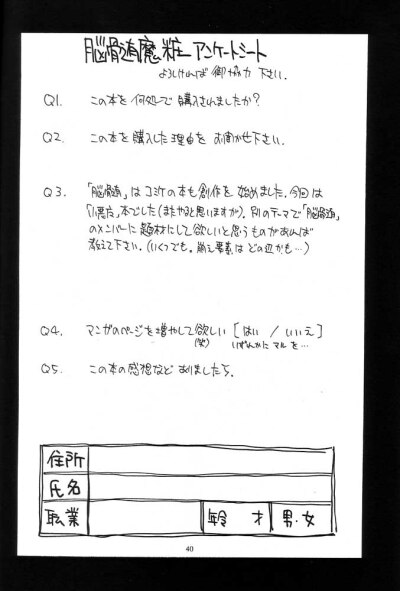 脳骨髄魔粧 アンケートシート
よろしければ 御協力 下さい.
Q1. この本を何処で購入されましたか？
Q2. この本を購入した理由をお聞かせ下さい.
Q3. 「脳骨髄」はコミケの本も創作を始めました. 今回は
「小悪魔」本でした(またやると思いますが). 別のテーマで「脳骨髄」
のメンバーに題材にして欲しいと思うものがあれば
教えて下さい. (いくつでも. 萌え要素はどの辺かも…)
Q4. マンガのページを増やして欲しい [はい / いいえ]
(笑) いずれかにマルを…
Q5. この本の感想などありましたら.
住所
氏名
職業 年齢 才 男・女
40